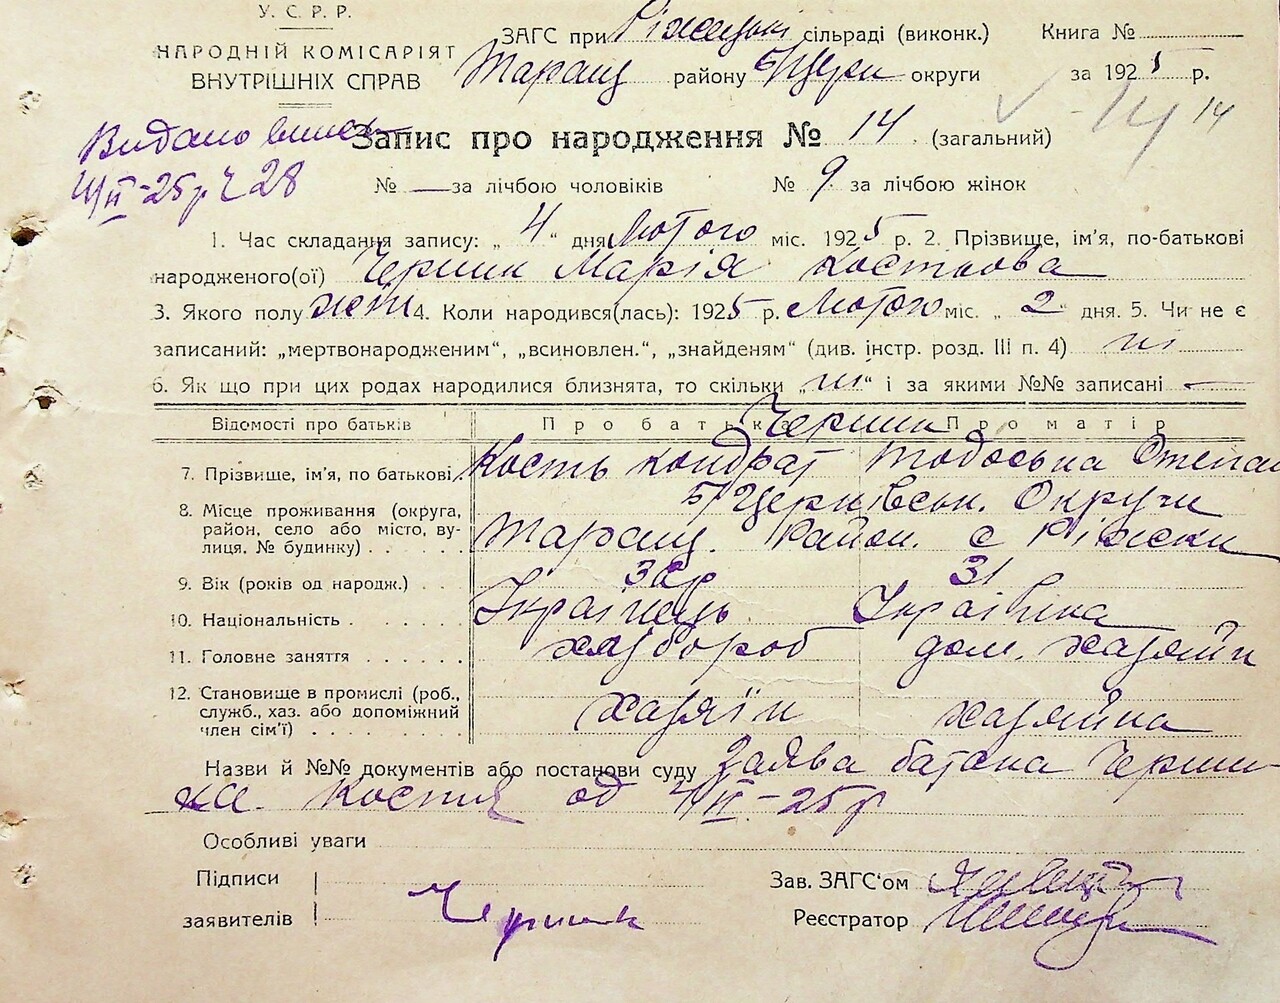 У. С. Р. Р.
НАРОДНІЙ КОМІСАРІЯТ
ВНУТРІШНІХ СПРАВ
ЗАГС при сільраді (виконк.) Книга №
Таращ району Б/Церк округи за 1925 р.
Видано
4/II-25р Ч 28
Запис про народження № 14 (загальний) 14 14
№ — за лічбою чоловіків № 9 за лічбою жінок
1. Час складання запису: „ 4 “ дня Лютого міс. 1925 р. 2. Прізвище, ім'я, по-батькові
народженого(ої) Черниш Марія Костьова
3. Якого полу жін 4. Коли народився(лась): 1925 р. Лютого міс. „ 2 “ дня. 5. Чи не є
записаний: „мертвонародженим“, „всиновлен.“, „знайденям“ (див. інстр. розд. III п. 4) ні
6. Як що при цих родах народилися близнята, то скільки „ ні “ і за якими №№ записані —
Відомості про батьків Про батька Про матір
Черниш
7. Прізвище, ім'я, по батькові Кость Кондрат Тодоська Степан
Б/Церківськ. Округи
8. Місце проживання (округа, район, село або місто, вулиця. № будинку) Таращ. Район. с Ріжки
9. Вік (років од народж.) 31
10. Національність Українець Українка
11. Головне заняття хлібороб дом. хазяйн
12. Становище в промислі (роб., служб., хаз. або допоміжний член сім'ї) хазяїн хазяйка
Назви й №№ документів або постанови суду Заява батька Черниш
Костя од 4/II-25р
Особливі уваги
Підписи
заявителів Черниш
Зав. ЗАГС'ом
Реєстратор